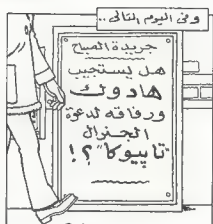 وفى اليوم التالى..
جريدة الصباح
هل يستجيب
هادوك
ورفاقه لدعوة
الجنرال
تاپيوكا"؟!